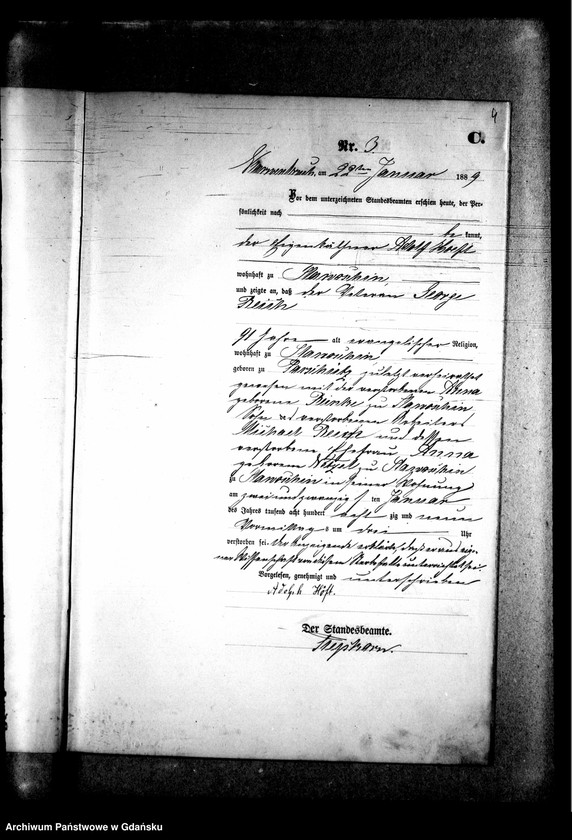 4
C.
Nr. 3
am 23ten Januar 1889
Vor dem unterzeichneten Standesbeamten erschien heute, der Per-
sönlichkeit nach
be kannt,
der Eigenkäthner Adolf Hoeft
wohnhaft zu
und zeigte an, daß der Veteran George
91 Jahre alt evangelischer Religion,
wohnhaft zu
geboren zu zuletzt verheirathet
gewesen mit der verstorbenen Anna
geborene Reinke zu
Sohn des verstorbenen
Michael und dessen
verstorbene Ehefrau Anna
geborene zu
zu in seiner Wohnung
am zwei und zwanzig ten Januar
des Jahres tausend acht hundert acht zig und neun
Vormittags um drei Uhr
verstorben sei. Der Anzeigende erklärte, daß er aus eige-
ner Wissenschaft von diesem Sterbfalle unterrichtet sei.
Vorgelesen, genehmigt und unterschrieben
Adolph Höft.
Der Standesbeamte.
Archiwum Państwowe w Gdańsku